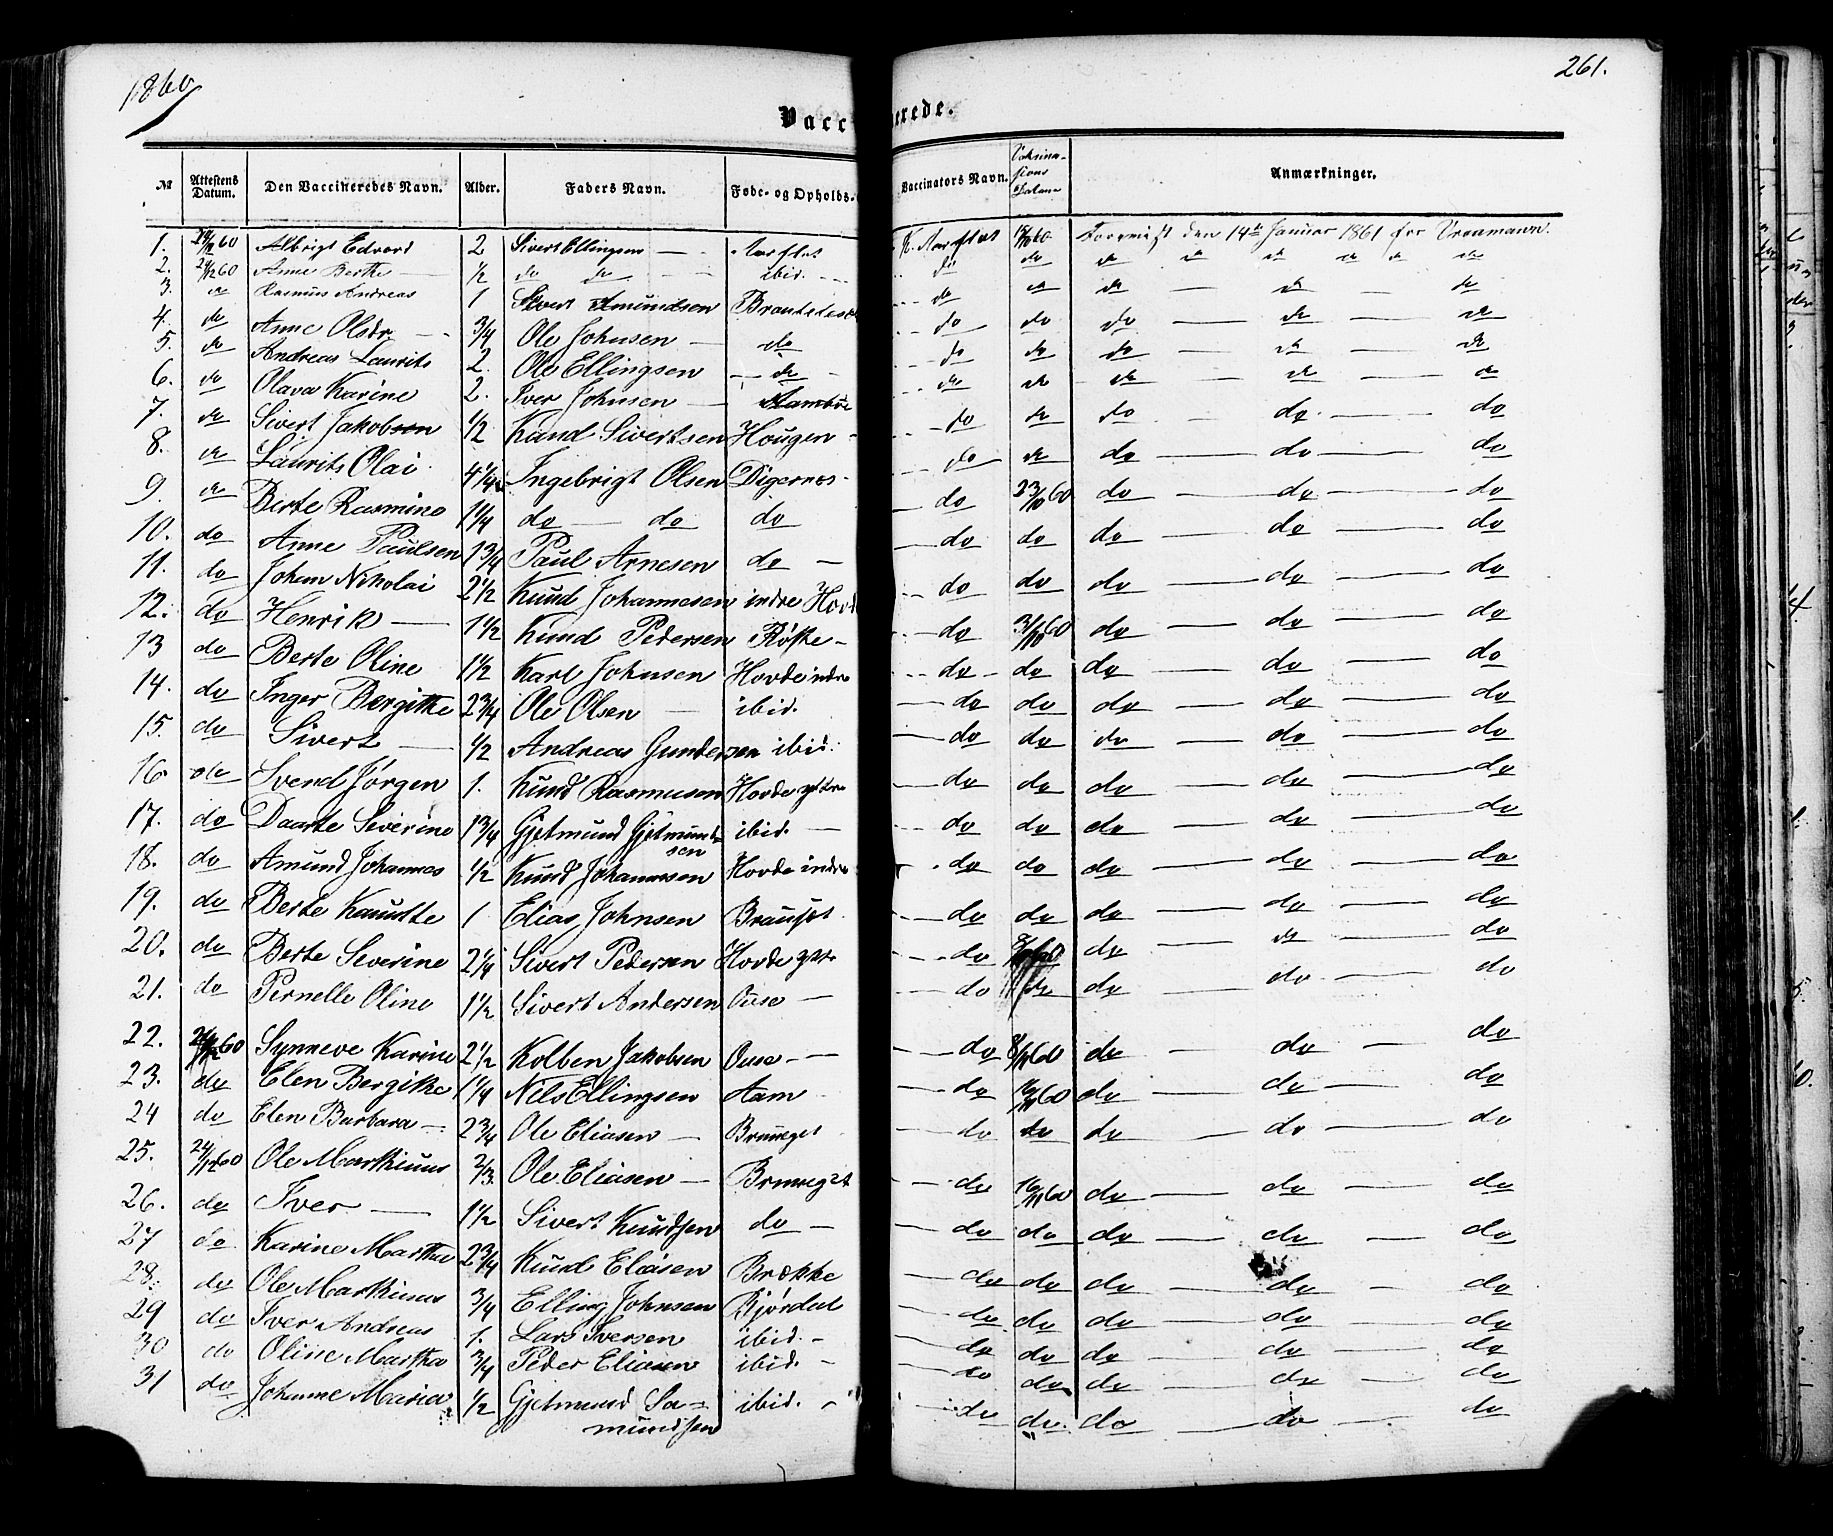 1860
261.
Vacc erede.
No Attestens Datum. Den Vaccineredes Navn. Alder. Faders Navn. Føde- og Opholds- Vaccinators Navn. Vaksinasions Datum Anmærkninger.
1. 24/12 60 Albrigt Edvard 2 Sivert Ellingsen Aarflot K. Aarflot den 14de Januar 1861 for
2. 24/12 60 Anne Berthe 1/2 do do ibid. do do do do do do do do
3. do Rasmus Andreas 1 Sivert Amundsen do do do do do
4. do Anne Olsdr. 3/4 Ole Johnsen do do do do do do
5. do Andreas Laurits 2. Ole Ellingsen do do do do do do
6. do Olava Karine 2. Iver Johnsen do do do do do
7. do Sivert Jakobsen 1/2 Knud Sivertsen Hougen do do do do do
8. do Laurits Olai 4 1/4 Ingebrigt Olsen Digernes do do do do do
9. do Berte Rasmine 1 1/4 do do do do 23/10 60 do do do
10. do Anne Paulsen 1 3/4 Paul Arnesen do do do do do do
11. do Johan Nikolai 2 1/2 Knud Johannesen indre Hovde do do do do do
12. do Henrik 1 1/2 Knud Pedersen Røste do 31/10 60 do do do
13 do Berte Oline 1 1/2 Karl Johnsen Hovde indre do do do do do
14. do Inger Bergitte 2 3/4 Ole Olsen ibid. do do do do do
15. do Sivert 1/2 Andreas Gundersen ibid. do do do do do
16. do Svend Jørgen 1. Knud Rasmusen Hovde yttre do do do do do
17. do Daarte Severine 1 3/4 Gjetmund Gjetmundsen ibid. do do do do do
18. do Amund Johannes 1/2 Knud Johannesen Hovde indre do do do do do
19. do Berte Knudte 1 Elias Johnsen do do do do do
20. do Berte Severine 2 1/4 Sivert Pedersen Hovde ytt. do do do do
21. do Pernelle Oline 1 1/2 Sivert Andersen Ouse do do do do do
22. 24/12 60 Synneve Karine 2 1/2 Kolben Jakobsen Ouse do 8/11 60 do do do
23. do Elen Bergitte 1 1/4 Nels Ellingsen Aam do 16/11 60 do do do
24 do Elen Barbara 2 3/4 Ole Eliasen do do do do do
25. 24/12 60 Ole Martinus 2/3 Ole Eliasen do 16/11 60 do do do
26. do Iver 1 1/2 Sivert Knudsen do do do do do do
27 do Karine Martha 2 3/4 Knud Eliasen Brække do do do do do
28. do Ole Martinus 3/4 Elling Johnsen Bjørdal do do do do do
29 do Iver Andreas 1. Lars Iversen ibid. do do do do do
30 do Oline Martha 3/4 Peder Eliasen ibid. do do do do do
31 do Johanne Maria 1/2 Gjetmund Samundsen ibid. do do do do do